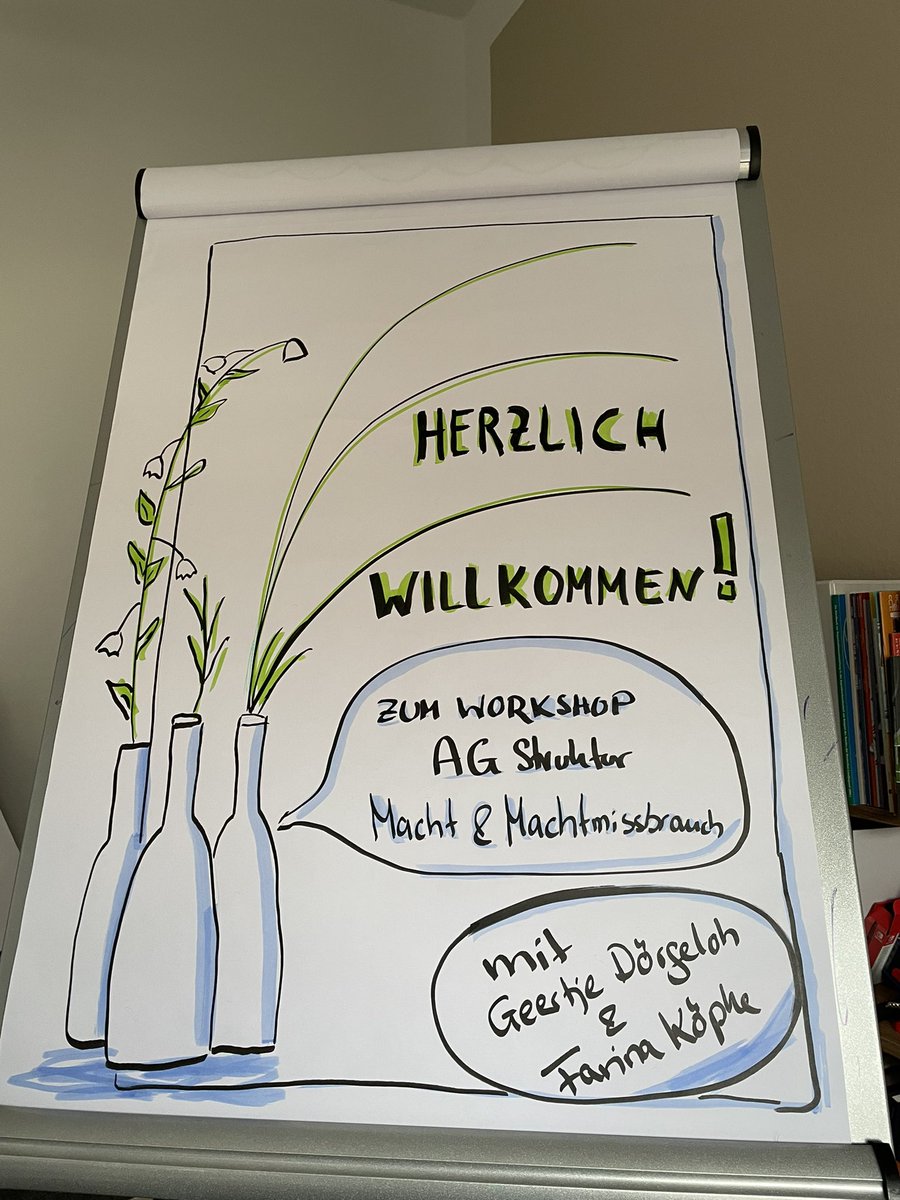 HERZLICH
WILLKOMMEN!
ZUM WORKSHOP
AG Struktur
Macht & Machtmissbrauch
mit
Geertje Dörgeloh
&
Farina Köpke